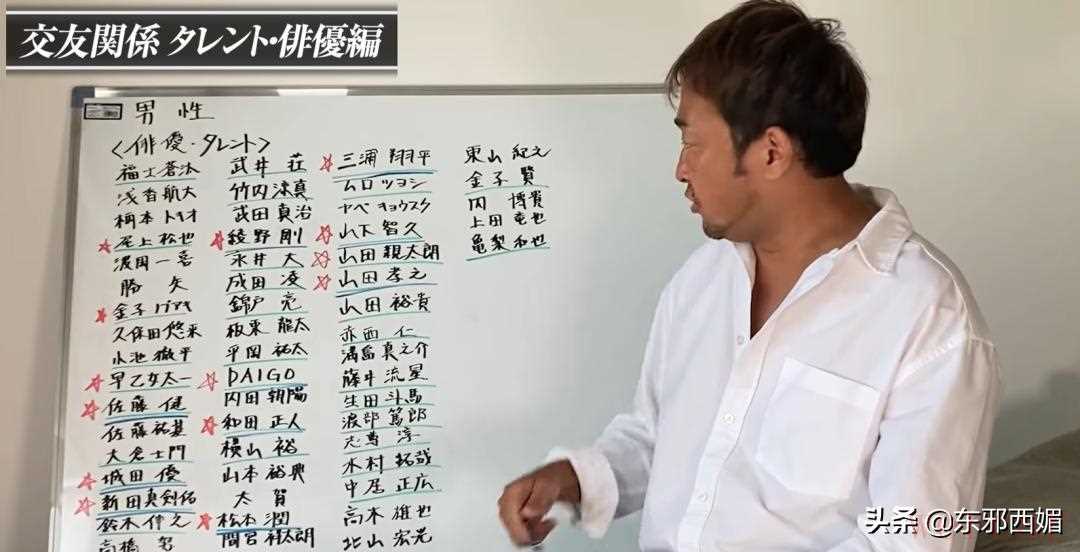 交友関係 タレント・俳優編
男性
〈俳優・タレント〉
福士蒼汰
浅香航大
柄本トキオ
尾上松也
波岡一喜
勝矢
金子ノブアキ
久保田悠来
小池徹平
早乙女太一
佐藤健
佐藤祐基
大倉士門
城田優
新田真剣佑
鈴木伸之
高橋
武井荘
竹内涼真
武田真治
綾野剛
永井大
成田凌
錦戸亮
板東龍太
平岡祐太
DAIGO
内田朝陽
和田正人
横山裕
山本裕典
太賀
松本潤
間宮祥太朗
三浦翔平
ムロツヨシ
ヤベキョウスケ
山下智久
山田親太朗
山田孝之
山田裕貴
赤西仁
満島真之介
藤井流星
生田斗馬
渡部篤郎
志尊淳
木村拓哉
中居正広
高木雄也
北山宏光
東山紀之
金子賢
内博貴
上田竜也
亀梨和也
头条 @东邪西媚